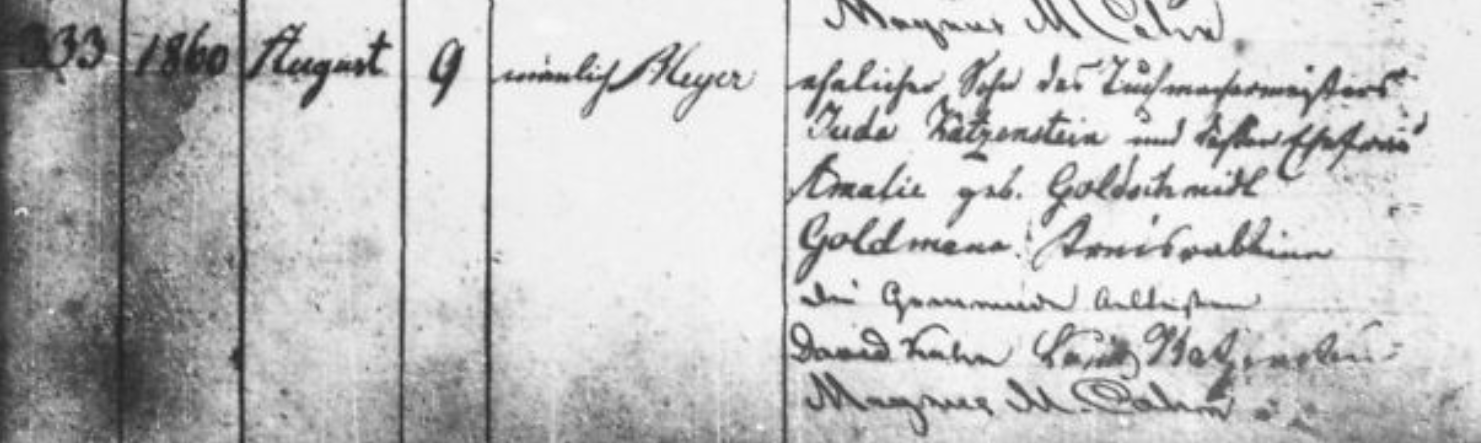 Magnus M Cahn
333 1860 August 9 männlich Meyer
ehelicher Sohn des Tuchmachermeisters
Juda Katzenstein und dessen Ehefrau
Amalie geb. Goldschmidt
Goldmann Kreisrabbiner
die Gemeinde Aeltesten
David Kahn Katzenstein
Magnus M. Cahn